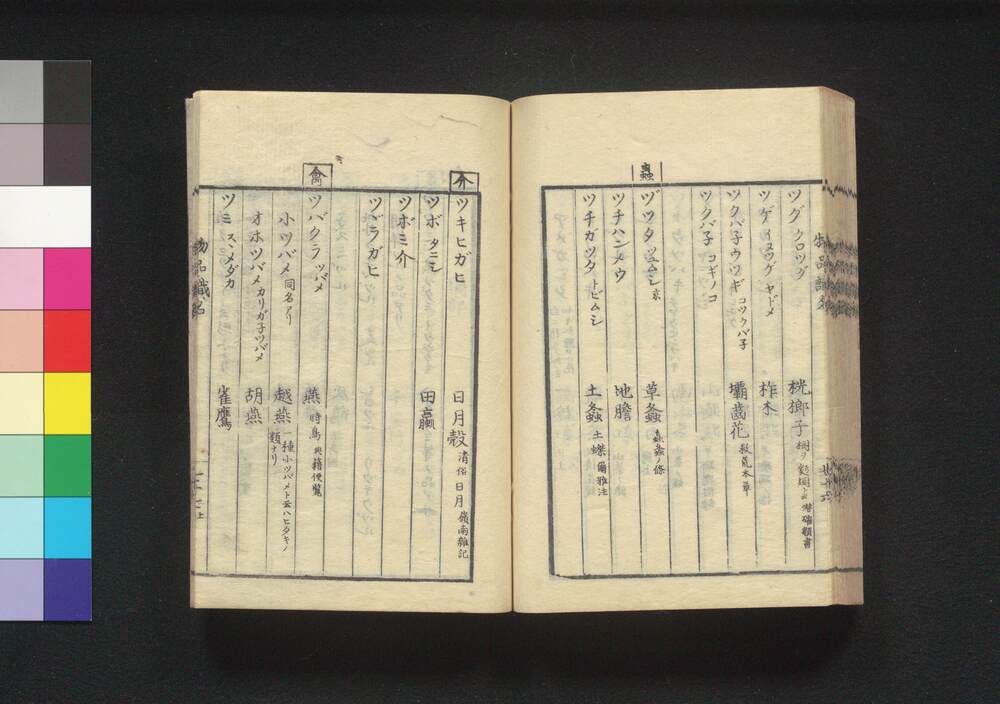 蟲
ツグ クロツグ 桄榔子
ツゲ イヌツゲ ヤドメ 柞木
ツクバ子ウツギ コツクバ子 壩齒花 救荒本草
ツクバ子 コギノコ
ヅツタツムシ 京 草螽 螽ノ條
ツチハンメウ 地膽
ツチガツタ トビムシ 土螽 土蠜 爾雅注
介
ツキヒガヒ 日月殼 清俗 日月 嶺南雜記
ツボ タニシ 田蠃
ツボミ介
ツベラガヒ
禽
ツバクラ ツバメ 燕 時鳥 典籍便覧
小ツバメ 同名アリ 越燕 一種小ツバメト云ハヒタキノ
類ナリ
オホツバメ カリガ子ツバメ 胡燕
ツミ スヽメダカ 雀鷹
物品識名